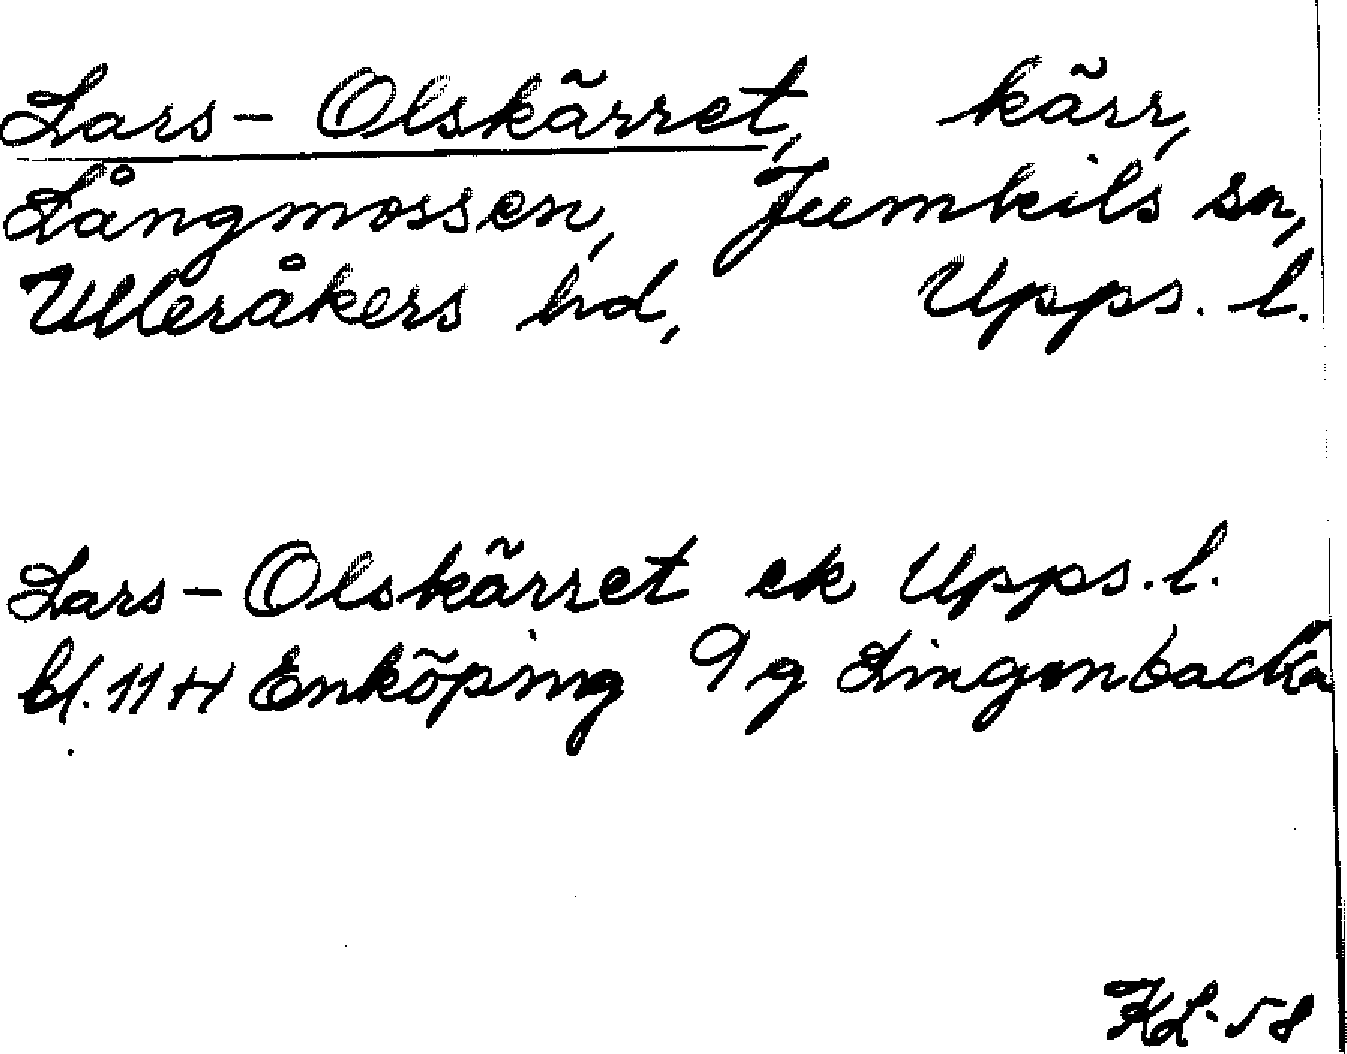 Lars-Olskärret, kärr,
Långmossen, Jumkils sn,
Ulleråkers hd, Upps. l.
Lars-Olskärret ek Upps. l.
bl. 11 H Enköping 9 g Lingonbacka
KL-58